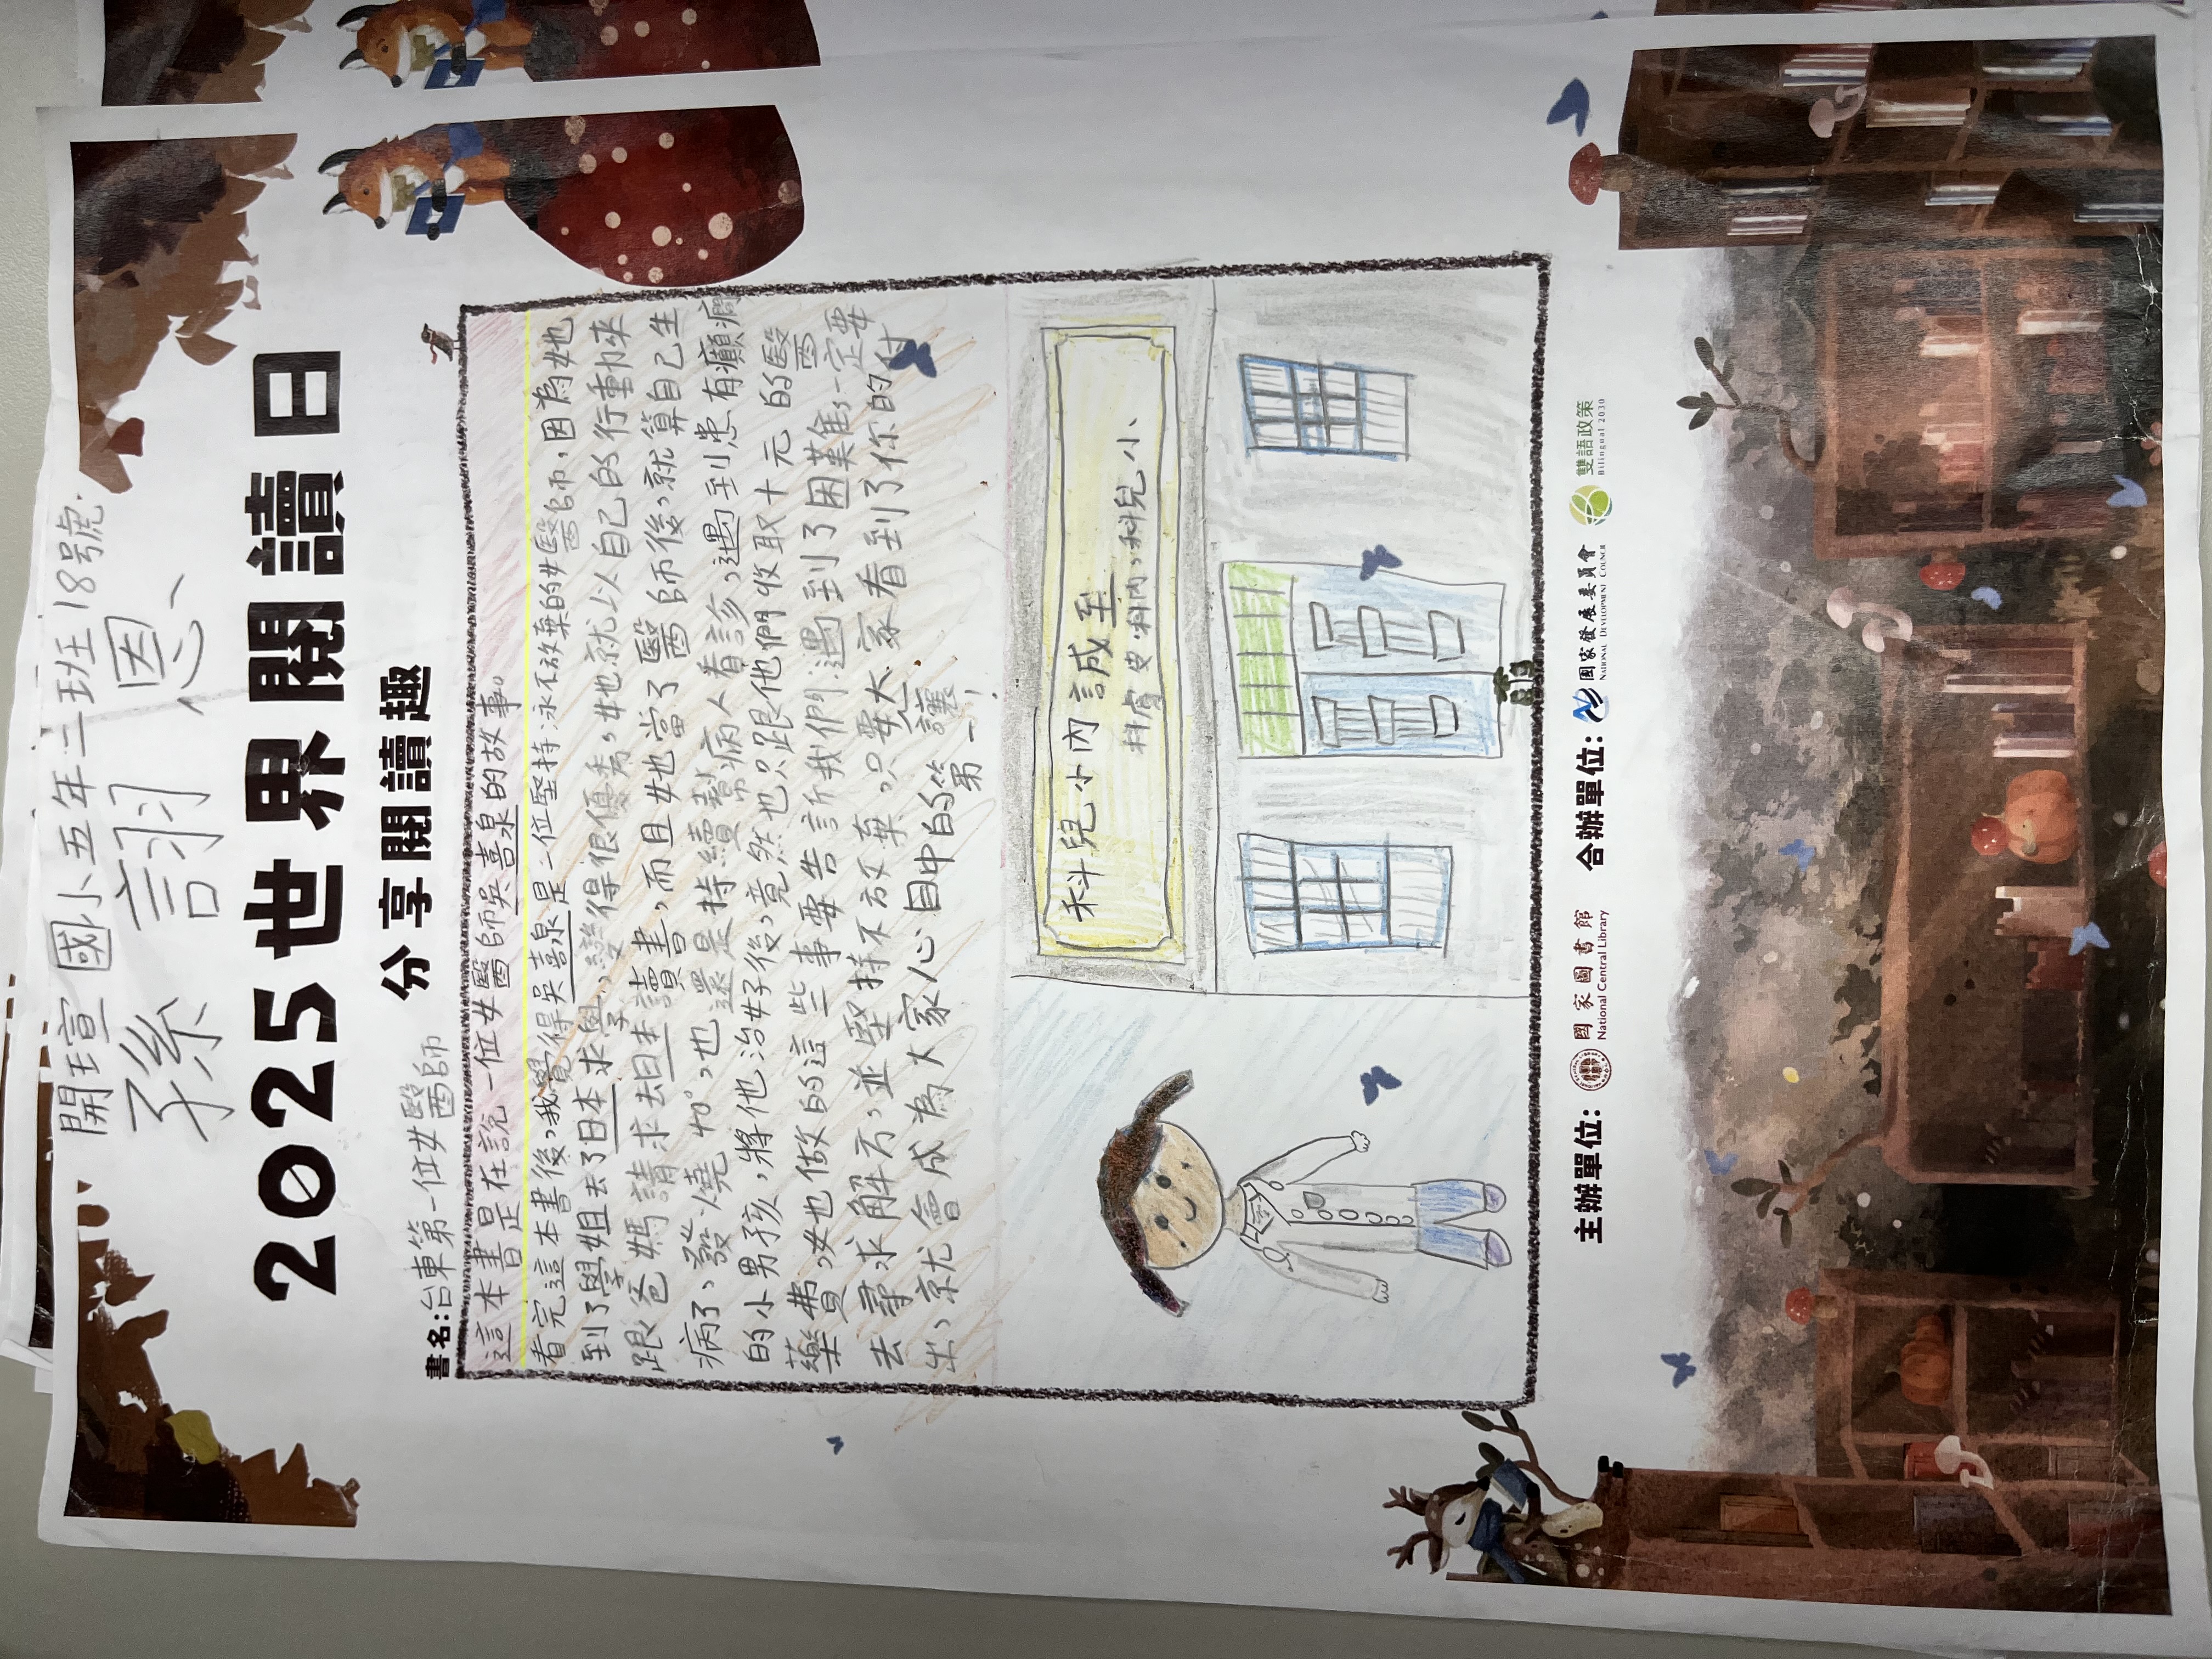 開瑄國小五年三班18号號.
孫詡恩
2025世界閱讀日
分享閱讀趣
書名:台東第一位女醫師
這本書是在說一位女醫師吳喜泉的故事。
看完這本書後,我覺得吳喜泉是一位堅持永不放棄的女醫師,因為她
到了學姐去了日本求學,變得很優秀,她就以自己的行動來
跟爸媽請求去日本讀書,而且她當了醫師後,就算自己生
病了、發燒也還是持續幫病人看診,遇到患有癲癇
的小男孩,將他治好後,竟然也只跟他們收取十元的醫
藥費,她做的這些事要告訴我們遇到了困難,一定要
去尋求解方,並堅持不放棄,只要大家看到了你的付
出,就會成為大家心目中的第一!
讓
科兒小內誠至
科膚皮,科內,科兒小
主辦單位: 國家圖書館 National Central Library 合辦單位: 國家發展委員會 NATIONAL DEVELOPMENT COUNCIL 雙語政策 Bilingual 2030